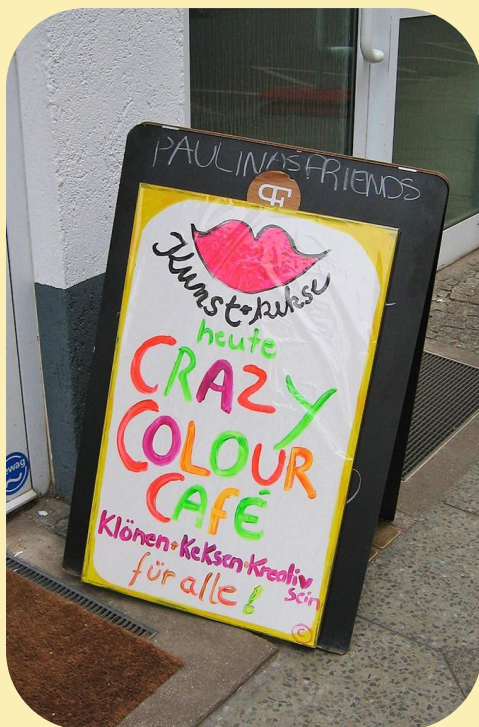 PAULINA'S FRIENDS
PF
Kunst+kekse
heute
CRAZY
COLOUR
CAFÉ
Klönen+Keksen+Kreativ
sein
für alle!
©
ewag